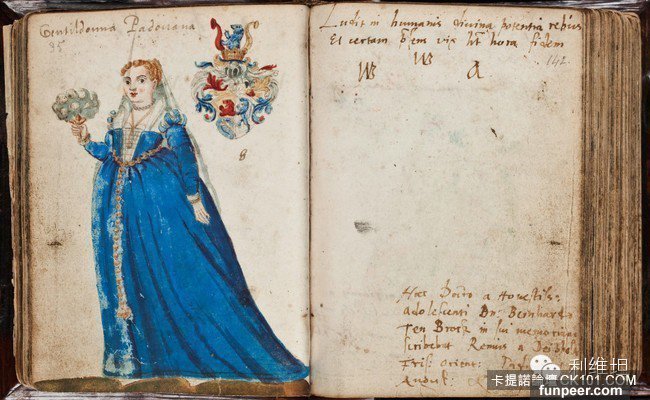 Gentildonna Padoviana
95
8
Ludit in humanis divina potentia rebus
Et certam
vix
hora fidem
142
W W A
Hæc Docto a Honestiss:
adolescenti Dn: Bernhard
Ten Broek in sui memoriam
scribebat Remus a
Fris: orient:
利维坦
卡提諾論壇CK101.COM
funpeer.com